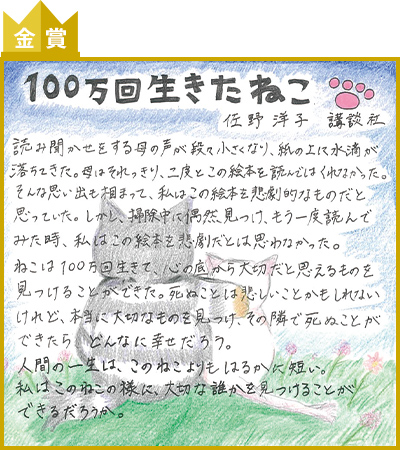 金賞
100万回生きたねこ
佐野洋子 講談社
読み聞かせをする母の声が段々小さくなり、紙の上に水滴が
落ちてきた。母はそれっきり、二度とこの絵本を読んではくれなかった。
そんな思い出も相まって、私はこの絵本を悲劇的なものだと
思っていた。しかし、掃除中に偶然見つけ、もう一度読んで
みた時、私はこの絵本を悲劇だとは思わなかった。
ねこは100万回生きて、心の底から大切だと思えるものを
見つけることができた。死ぬことは悲しいことかもしれない
けれど、本当に大切なものを見つけ、その隣で死ぬことが
できたら どんなに幸せだろう。
人間の一生は、このねこよりもはるかに短い。
私はこのねこの様に、大切な誰かを見つけることが
できるだろうか。